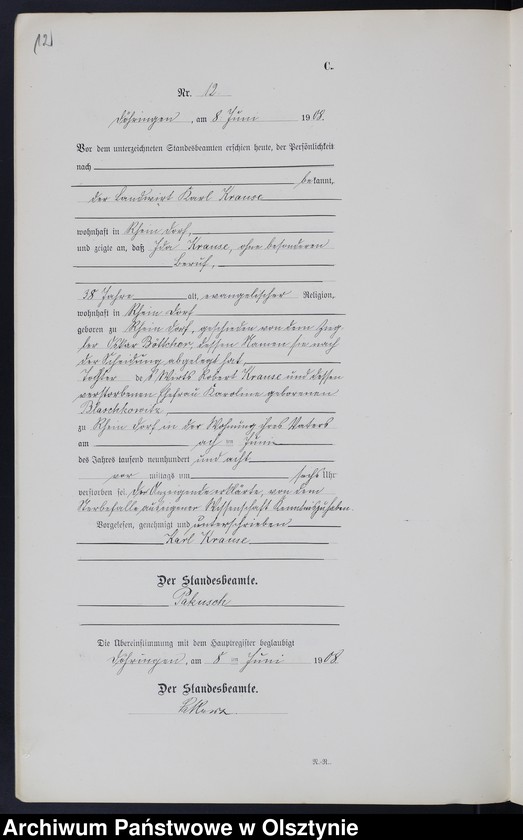 (12)
C.
Nr. 12
Döhringen, am 8 Juni 1908.
Vor dem unterzeichneten Standesbeamten erschien heute, der Persönlichkeit
nach
bekannt,
der Landwirt Karl Krause
wohnhaft in Rheindorf,
und zeigte an, daß Ida Krause, ohne besonderen
Beruf,
38 Jahre alt, evangelischer Religion,
wohnhaft in Rheindorf
geboren zu Rheindorf, geschieden von dem Zieg-
ler Oskar Böttcher, dessen Namen sie nach
der Scheidung abgelegt hat,
Tochter des Wirts Robert Krause und dessen
verstorbenen Ehefrau Karoline geborenen
zu Rheindorf in der Wohnung ihres Vaters
am ach = Juni
des Jahres tausend neunhundert und acht
vor mittags um sechs Uhr
verstorben sei. Der Anzeigende erklärte, von dem
Sterbefalle aus eigener Wissenschaft Kenntnis zu haben.
Vorgelesen, genehmigt und unterschrieben
Karl Krause
Der Standesbeamte.
Pakusch
Die Übereinstimmung mit dem Hauptregister beglaubigt
Döhringen, am 8 = Juni 1908.
Der Standesbeamte.
N.-R.
Archiwum Państwowe w Olsztynie